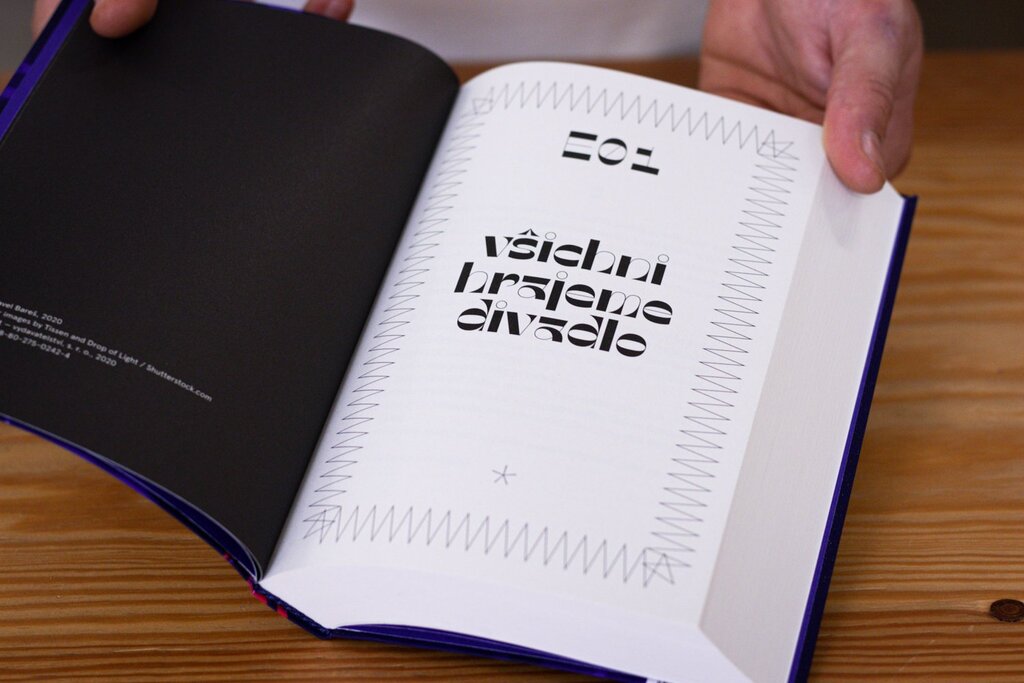 avel Bareš, 2020
images by Tissen and Drop of Light / Shutterstock.com
– vydavatelství, s. r. o., 2020
8-80-275-0242-4
E01
všichni
hrajeme
divadlo
*